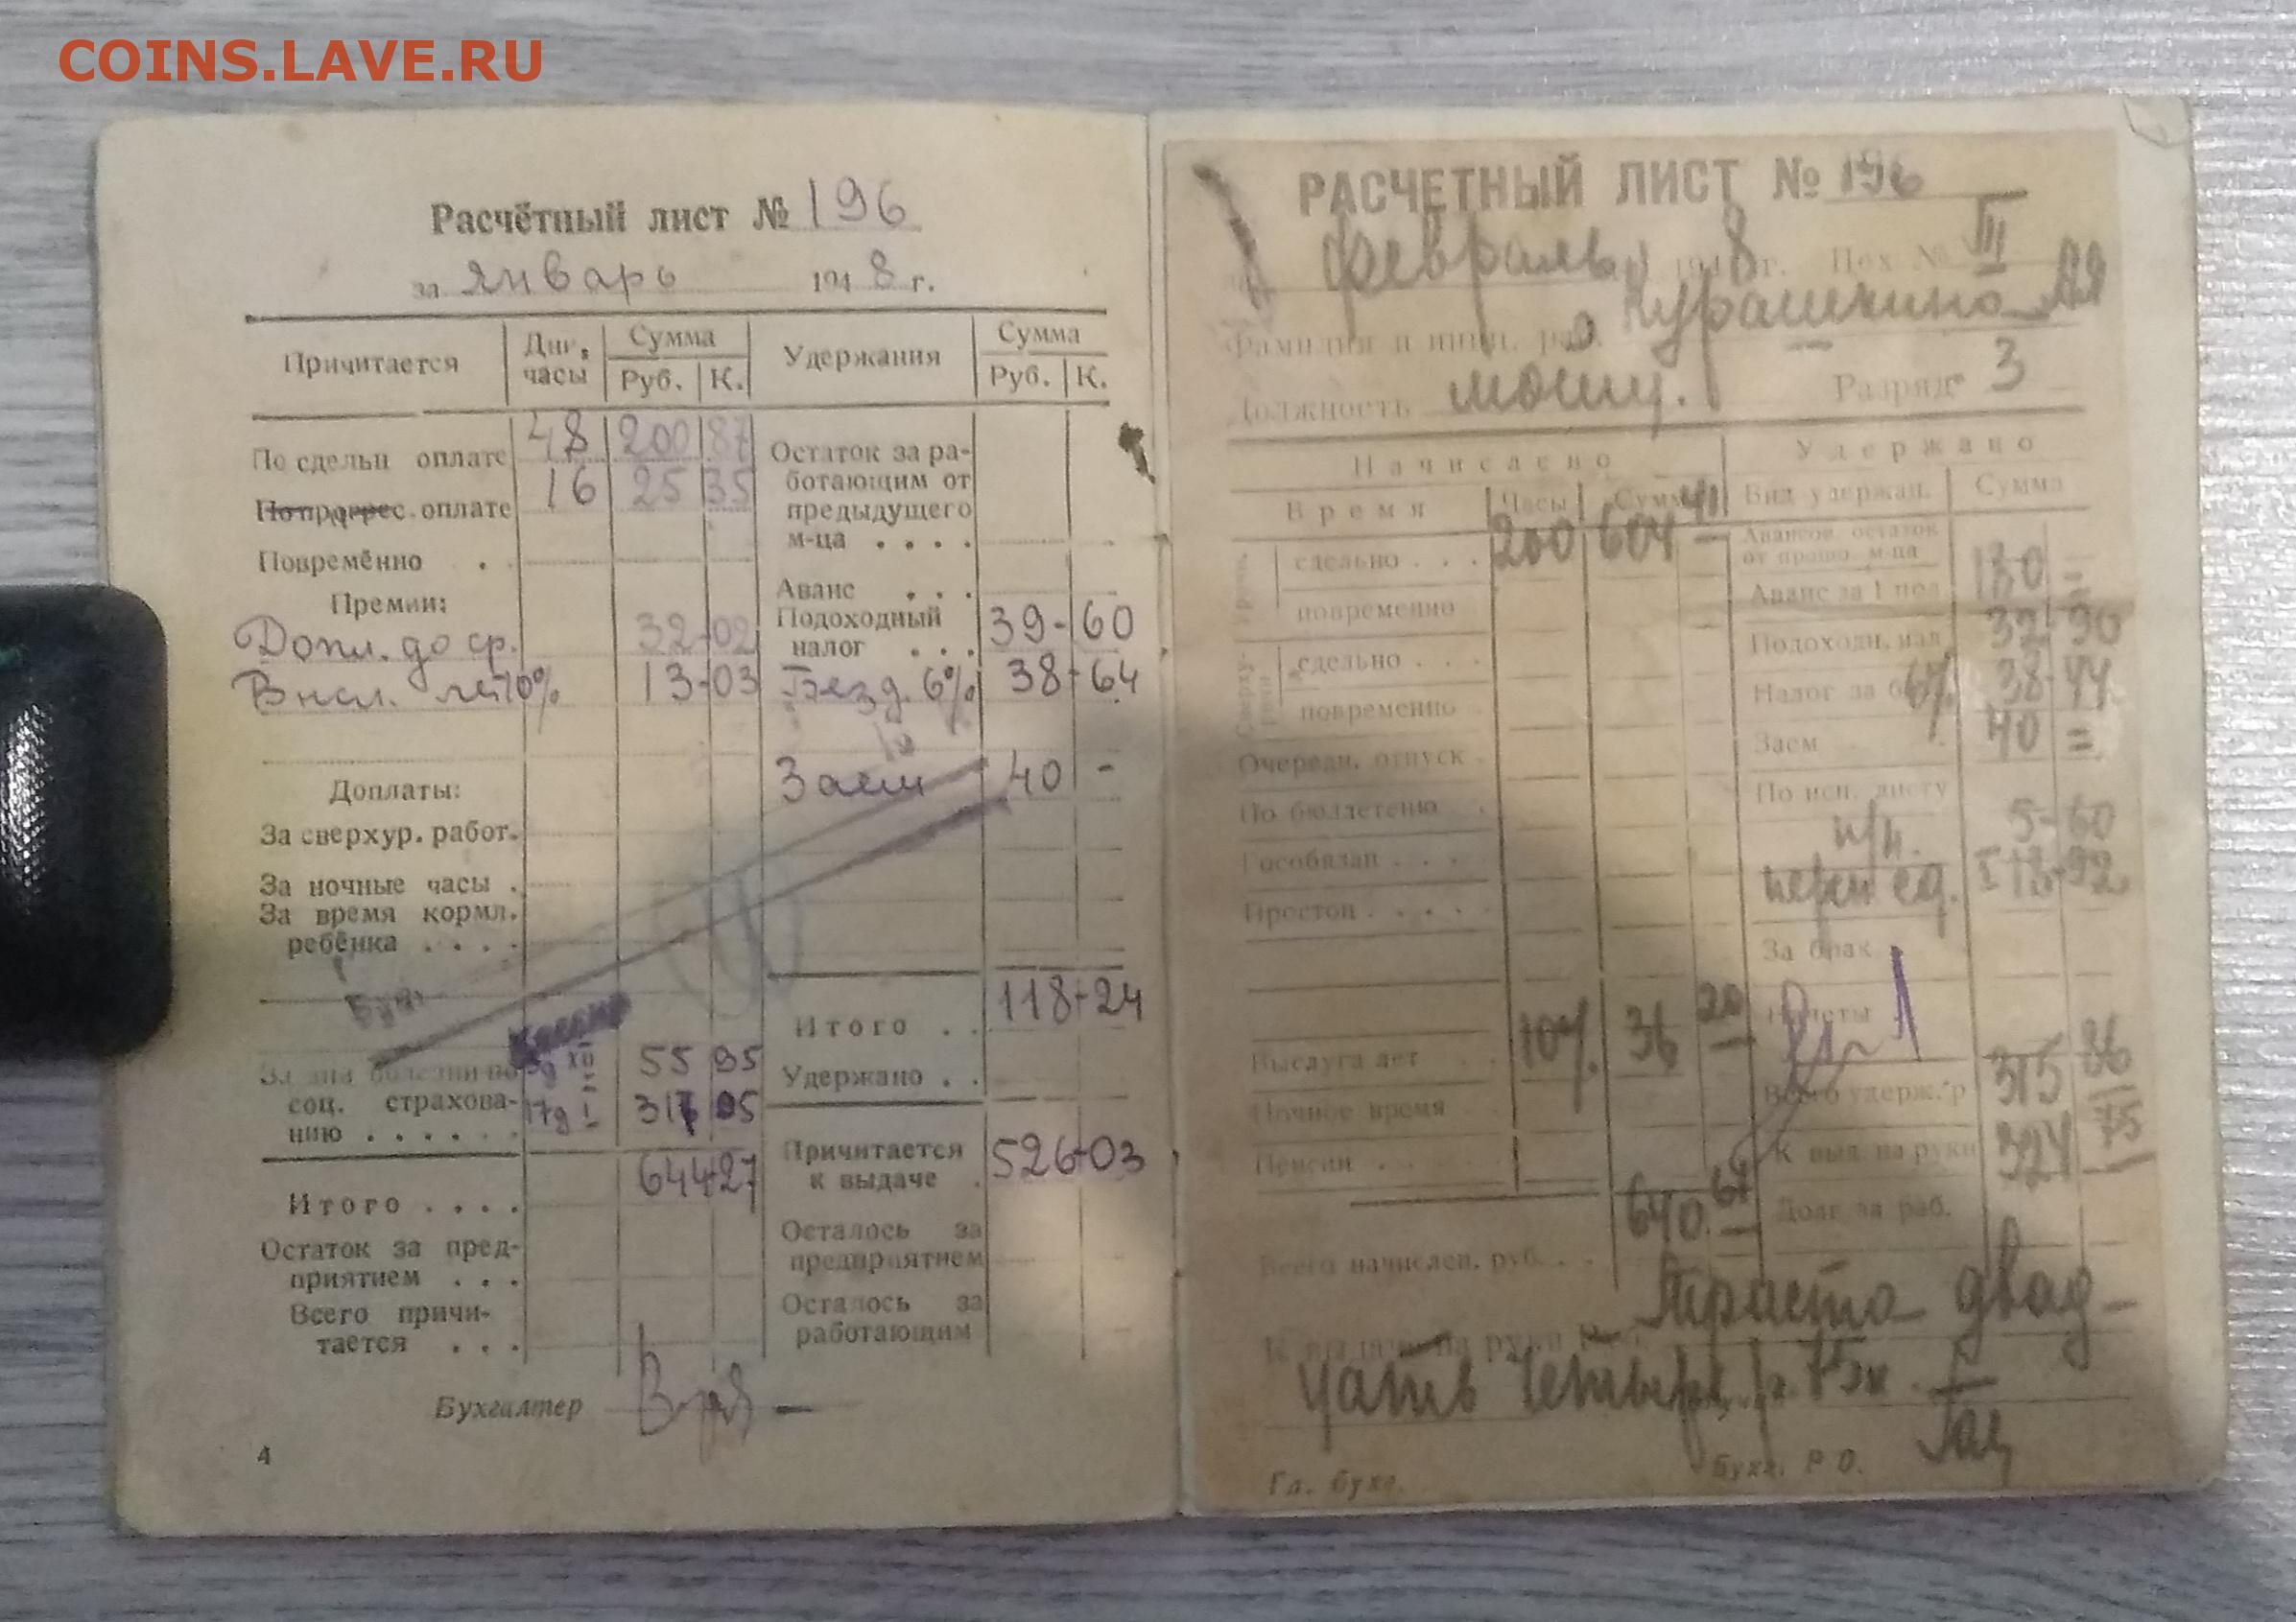 COINS.LAVE.RU
Расчётный лист № 196
за январь 1948 г.
Причитается Дни, часы Сумма Руб. К. Удержания Сумма Руб. К.
По сдельн оплате 48 200 87
16 25 35
По прогрес. оплате
Повремённо . .
Премии:
Допл. до ср. 32-02
Высл. лет 10% 13-03
Доплаты:
За сверхур. работ.
За ночные часы .
За время кормл.
ребёнка . . . .
Кассир
За дни болезни по
соц. страхова-
нию . . . . . .
55 95
17д I 317 05
Итого . . . . 644-27
Остаток за пред-
приятием . . .
Всего причи-
тается . . .
Остаток за ра-
ботающим от
предыдущего
м-ца . . . .
Аванс . . .
Подоходный
налог . . . 39-60
Безд. 6% 38-64
Заем 40 -
Итого . . 118-24
Удержано . .
Причитается
к выдаче . 526-03
Осталось за
предприятием
Осталось за
работающим
Бухгалтер
4
РАСЧЕТНЫЙ ЛИСТ № 196
февраль 1948 г. Цех № III
Фамилия и иниц. раб.
Должность Разряд 3
Начислено Удержано
Время Часы Сумма Вид удержан. Сумма
сдельно . . . 200 604 41
повременно
сдельно . . .
повременно .
Очередн. отпуск .
По бюллетеню .
Гособязан . . . .
Простои . . . . .
Выслуга лет . . 10% 36 20
Ночное время . .
Пенсии . . . .
Всего начислен. руб. . . 640.61
Авансов. остаток
от прошл. м-ца
Аванс за 1 пол. 130 =
Подоходн. нал. 32-90
Налог за б 6% 38-44
Заем 40 =
По исп. листу
5-60
За брак
Всего удерж. р 315 86
К выд. на руки 324 75
Долг за раб.
К выдаче на руки руб. Триста двад-
цать четыре р. 75 к
Гл. бухг. Бухг. Р О.